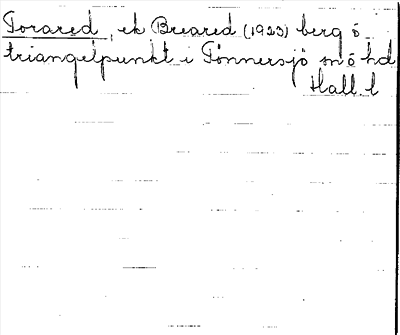 Torared, ek Breared (1923) berg o
triangelpunkt i Tönnersjö sn o hd
Hall. l